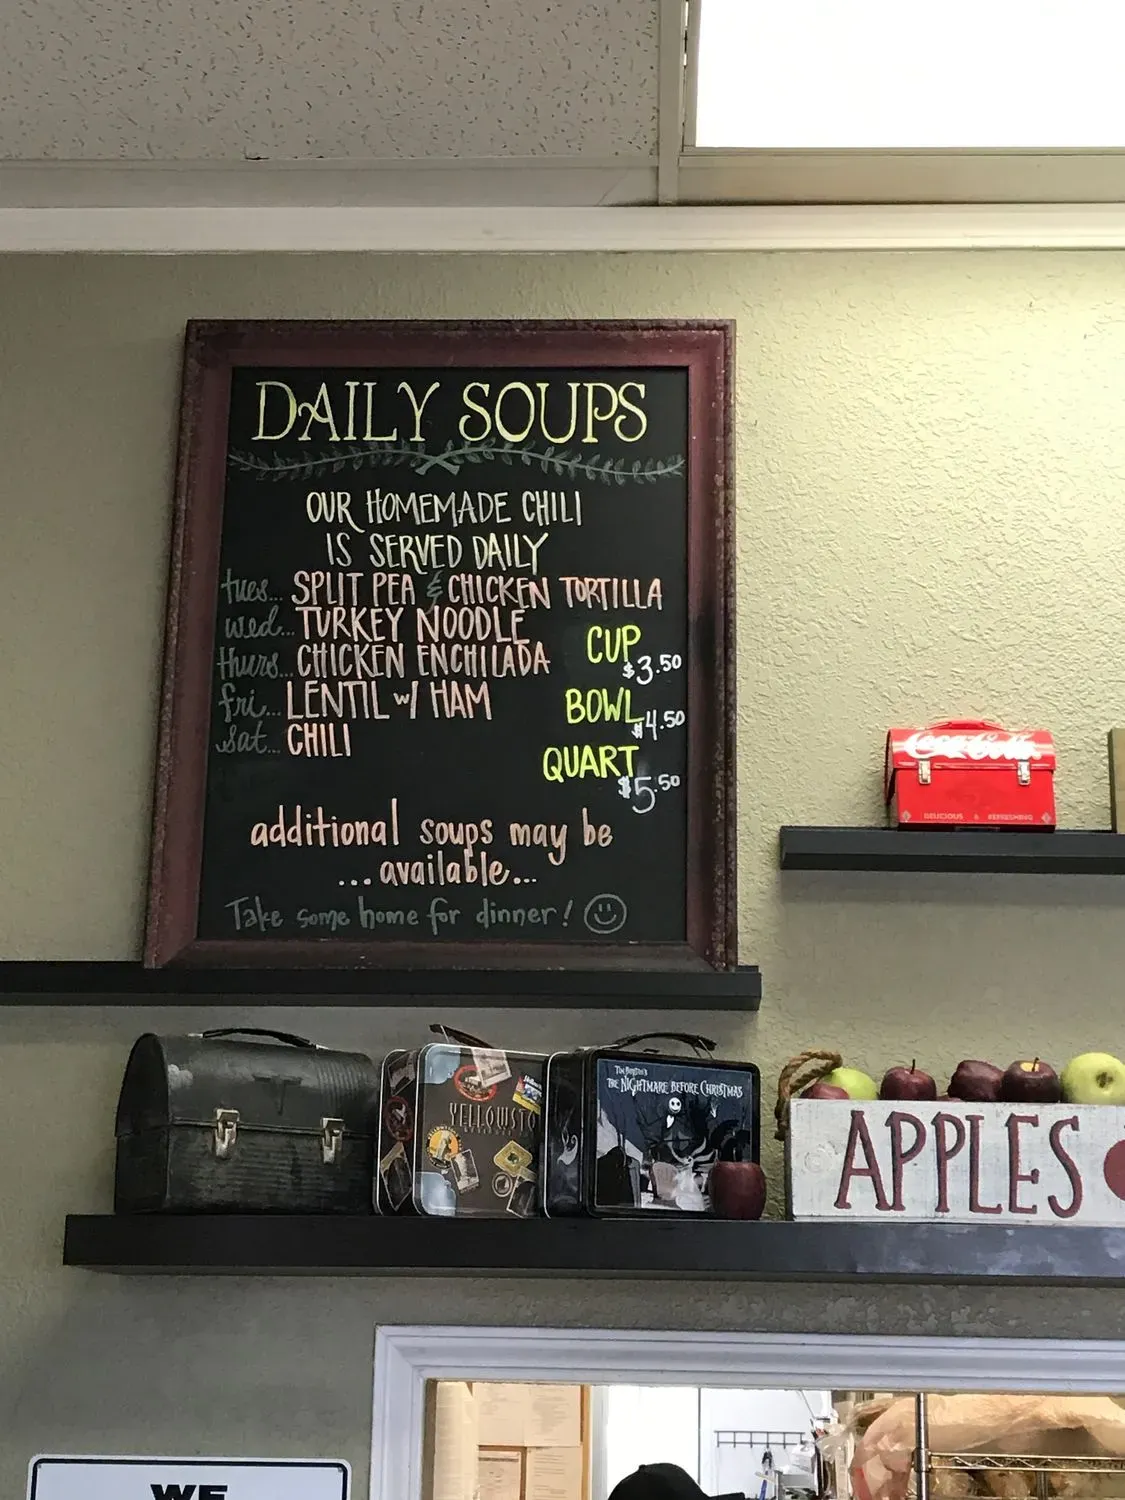 DAILY SOUPS
OUR HOMEMADE CHILI
IS SERVED DAILY
tues... SPLIT PEA & CHICKEN TORTILLA
wed... TURKEY NOODLE
thurs... CHICKEN ENCHILADA
fri... LENTIL w/ HAM
sat... CHILI
CUP
$3.50
BOWL
$4.50
QUART
$5.50
additional soups may be
...available...
Take some home for dinner!
Coca-Cola
DELICIOUS & REFRESHING
YELLOWSTO
TIM BURTON'S
THE NIGHTMARE BEFORE CHRISTMAS
APPLES
WE